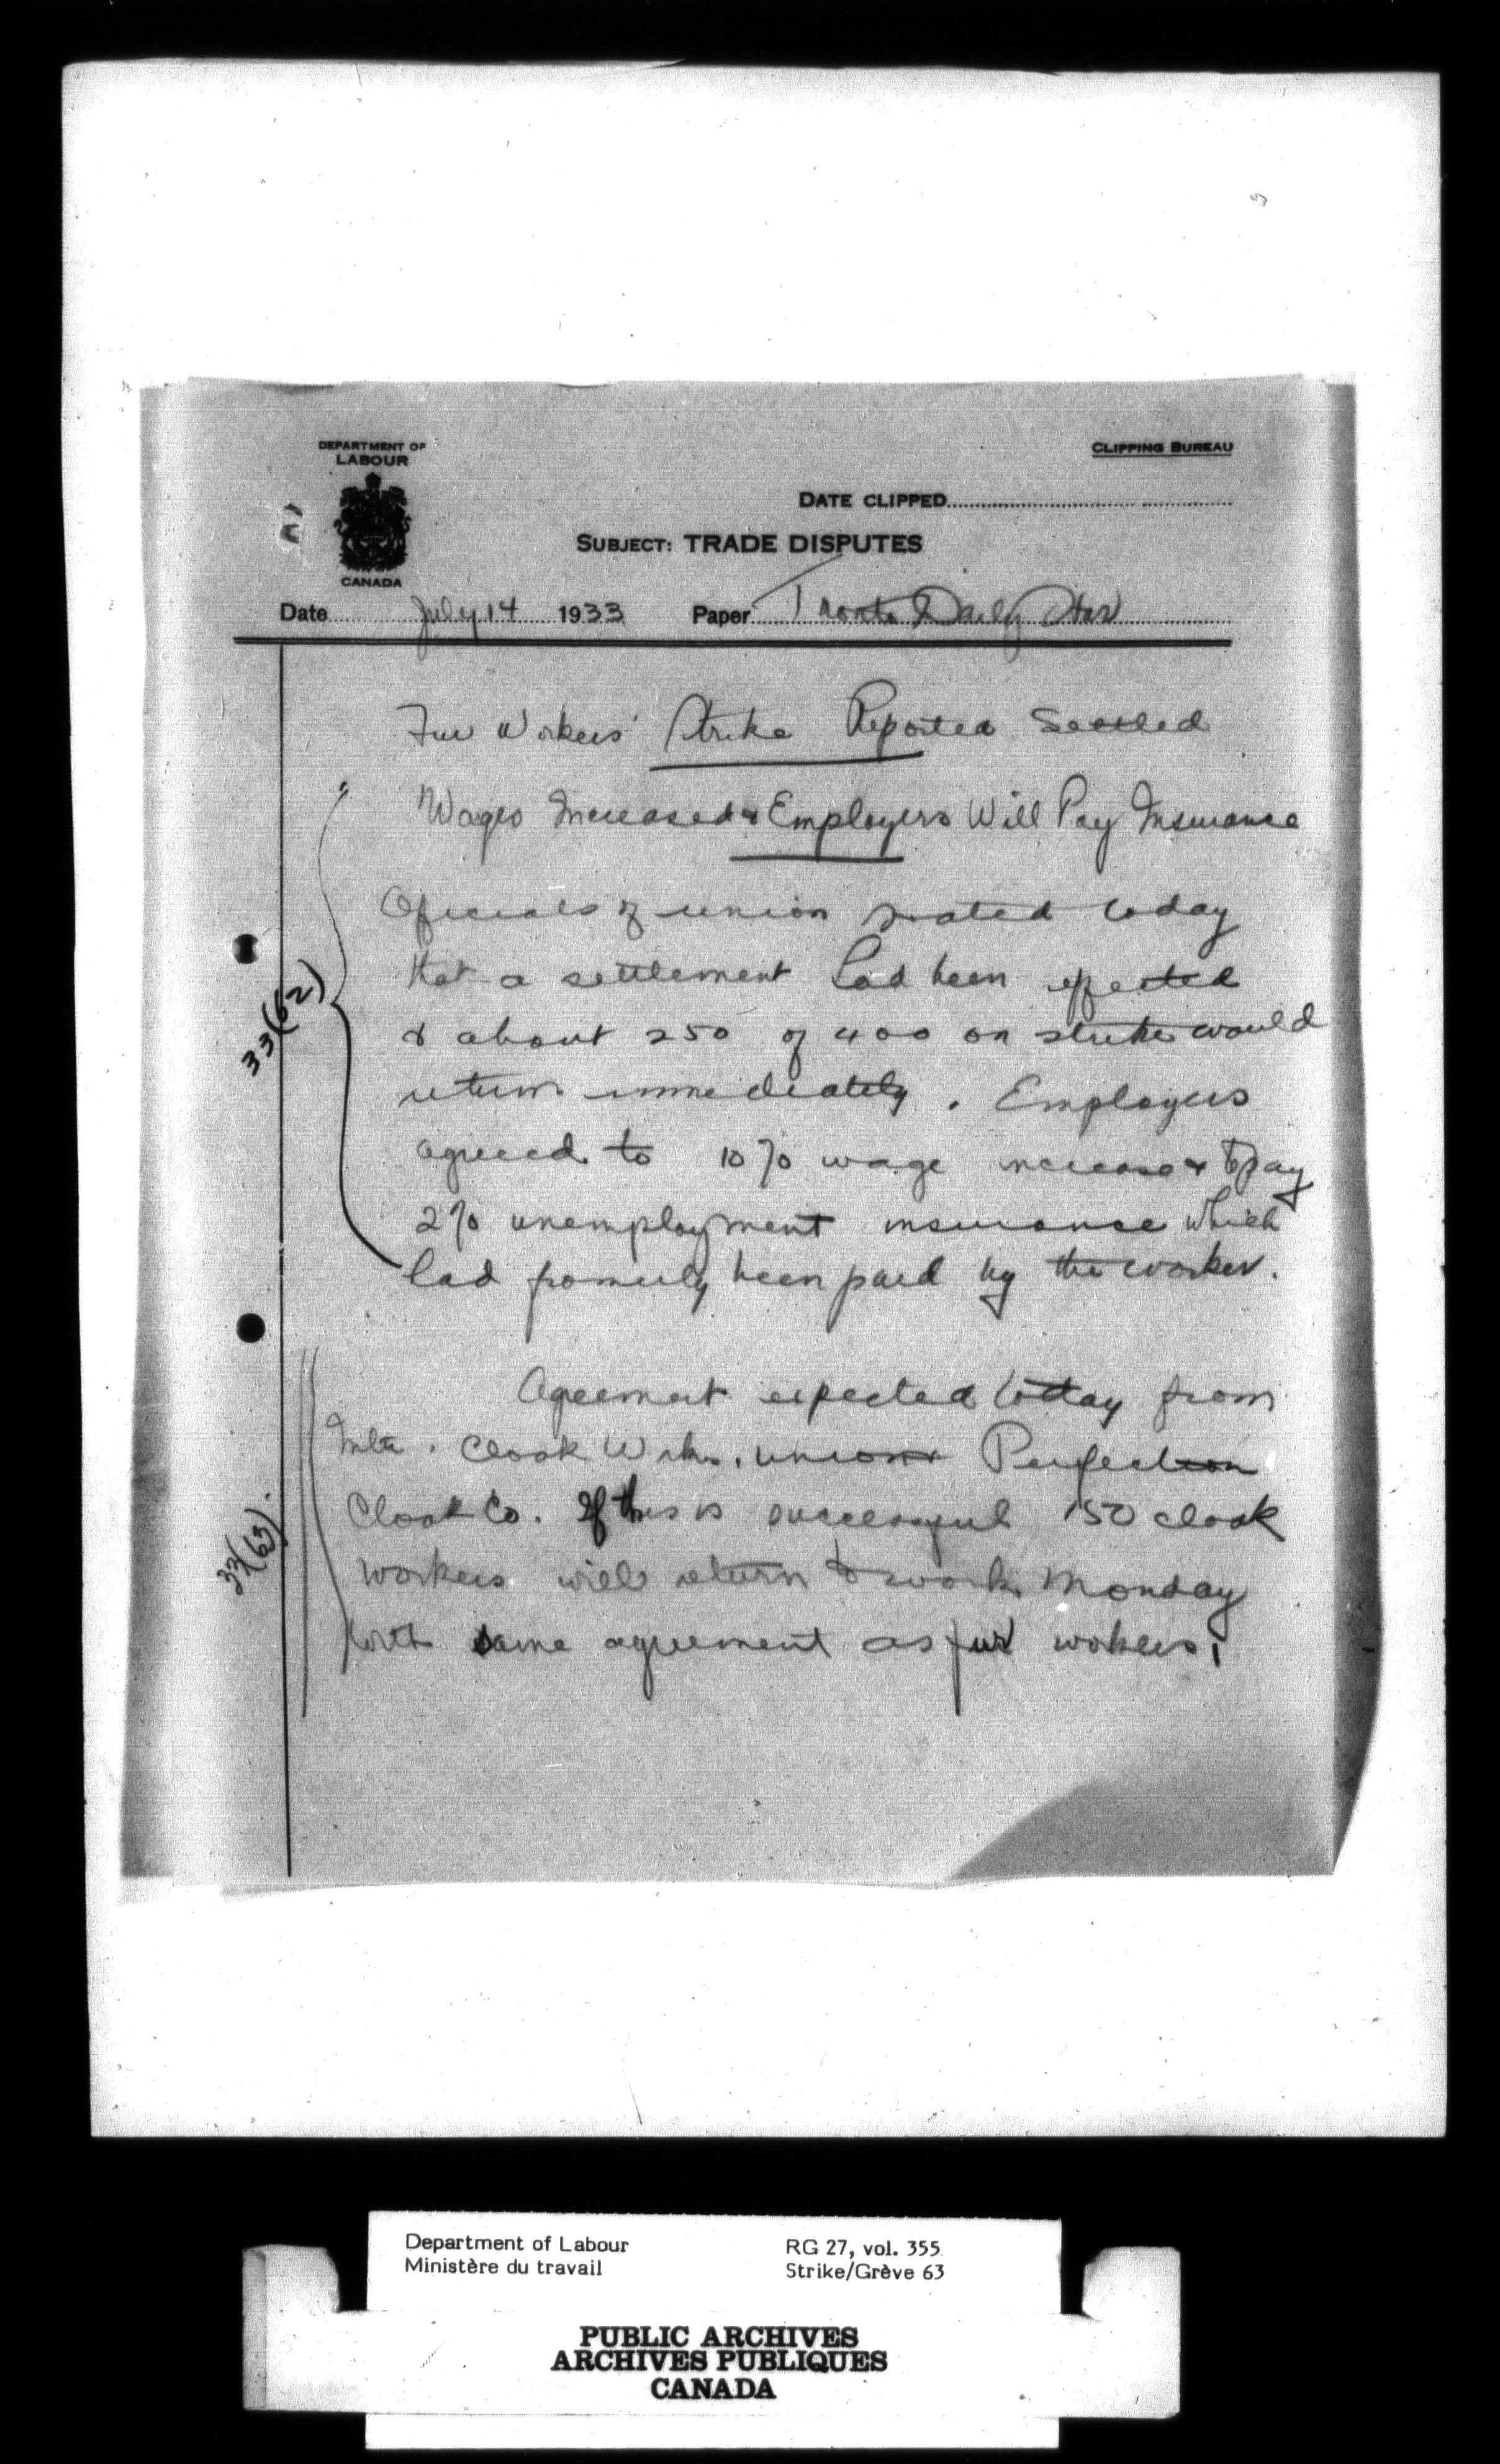 DEPARTMENT OF
LABOUR
CANADA
CLIPPING BUREAU
DATE CLIPPED
SUBJECT: TRADE DISPUTES
Date July 14 1933 Paper Toronto Daily Star
Fur Workers' Strike Reported Settled
Wages Increased & Employers Will Pay Insurance
Officials of union stated today
that a settlement had been effected
& about 250 of 400 on strike would
return immediately. Employers
agreed to 10% wage increase & to pay
2% unemployment insurance which
had formerly been paid by the worker.
33(62)
Agreement expected today from
Cloak Wkrs. union & Perfection
Cloak Co. If this is successful 150 cloak
workers will return to work Monday
with same agreement as fur workers.
33(63).
Department of Labour
Ministère du travail
RG 27, vol. 355
Strike/Grève 63
PUBLIC ARCHIVES
ARCHIVES PUBLIQUES
CANADA